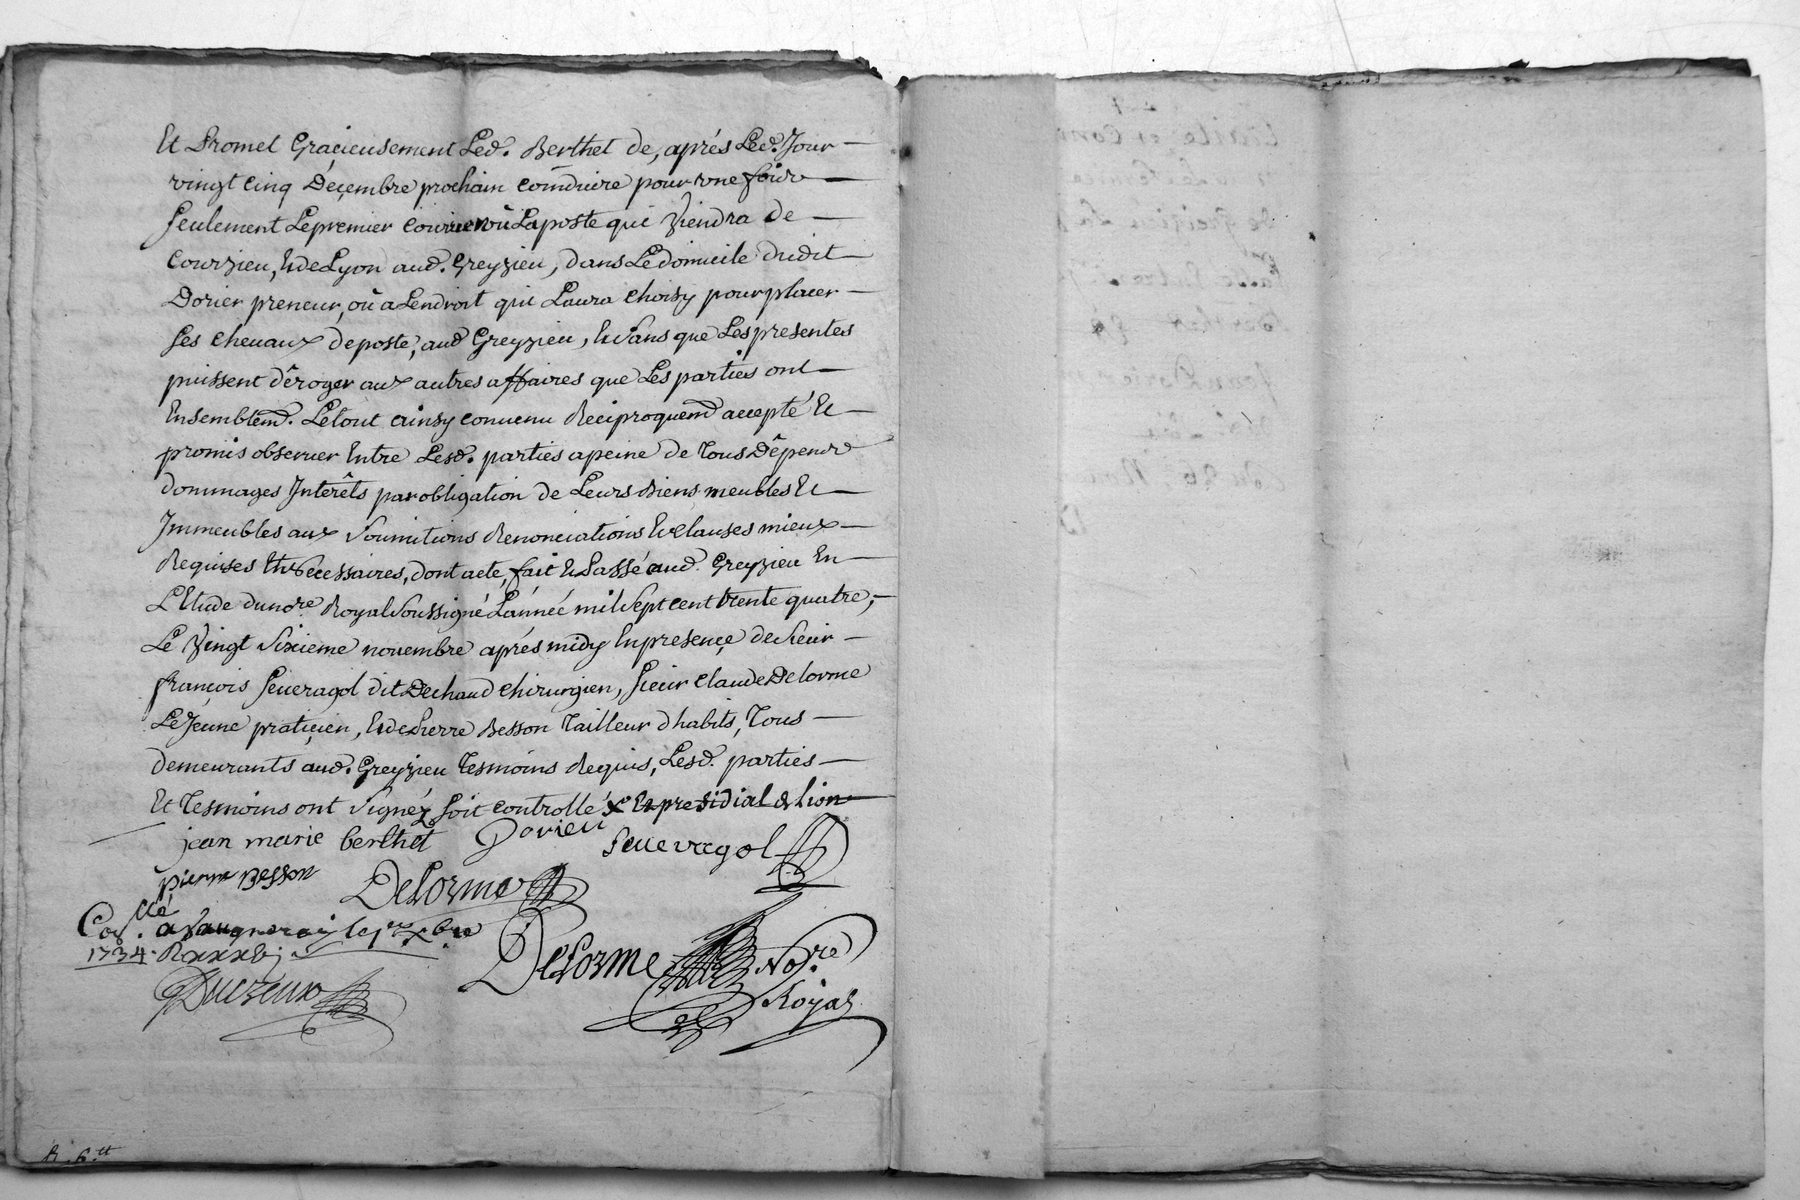 Et Promet Graçieusement Led. Berthet de, aprés Led. Jour
vingt Cinq Déçembre prochain conduire pour une fois
seulement Le premier Courier où La poste qui Viendra de
Courzieu, Et de Lyon aud. Greyzieu, dans Le domicile dudit
Dorier preneur, où a Lendroit qui Laura choisy pour placer
ses cheuaux de poste, aud Greyzieu, Et sans que Les presentes
puissent dêroger aux autres affaires que Les parties ont
Ensemblem̃. Le tout ainsy convenu Reciproquem̃ accepté Et
promis obseruer Entre Lesd. parties a peine de Tous Dêpens
dommages Interêts par obligation de Leurs Biens meubles Et
Immeubles aux soumitions Renonciations Et clauses mieux
Requises Et necessaires, dont acte, fait Et Passé aud. Greyzieu En
LEtude du no.re Royal soussigné Lannéé mil sept cent trente quatre,
Le Vingt sixieme nouembre aprés midy En presençe de sieur
françois seueragol dit Dechaud chirurgien, sieur Claude Delorme
Le Jeune pratiçien, Et de Pierre Besson Tailleur dhabits, Tous
demeurants aud. Greyzieu Tesmoins Requis, Lesd. parties
Et Tesmoins ont signéz soit controllé x Et presidial de lion
jean marie berthet Dorieu seueragol
pierre Besson Delorme
Co.llé a Vaugneray le 1er xbre
1734. R
Delorme No.re
Royal
R. 6.tt